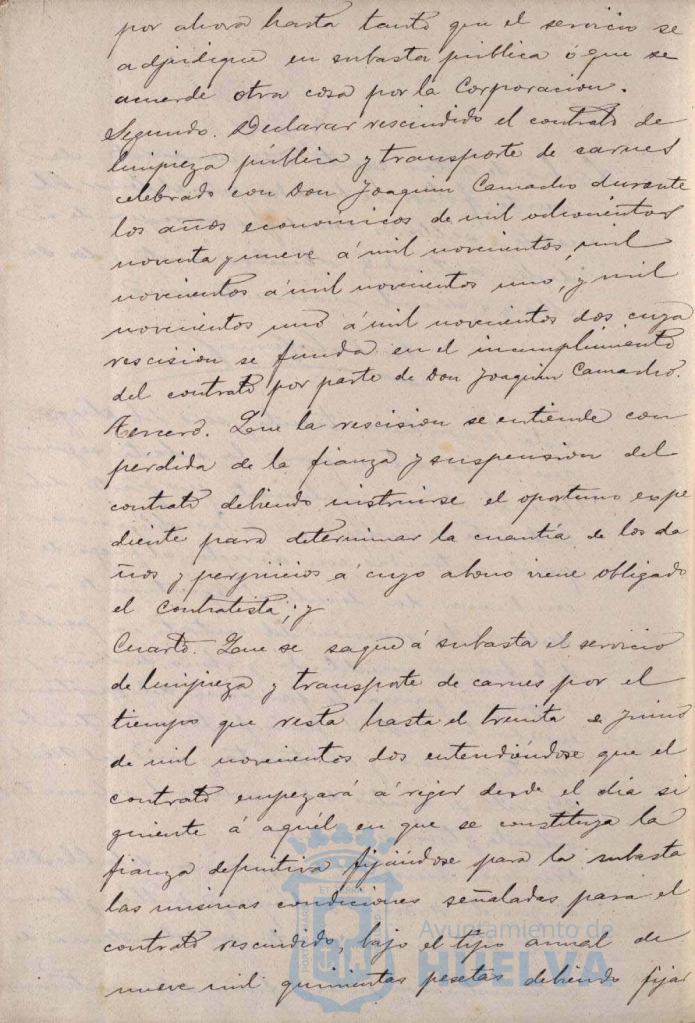 por ahora hasta tanto que el servicio se
adjudique en subasta pública ó que se
acuerde otra cosa por la Corporacion.
Segundo. Declarar rescindido el contrato de
limpieza pública y transporte de carnes
celebrado con Don Joaquin Camacho durante
los años económicos de mil ochocientos
noventa y nueve á mil novecientos, mil
novecientos á mil novecientos uno, y mil
novecientos uno á mil novecientos dos cuya
rescision se funda en el incumplimiento
del contrato por parte de Don Joaquin Camacho.
Tercero. Que la rescision se entiende con
pérdida de la fianza y suspension del
contrato debiendo instruirse el oportuno expe
diente para determinar la cuantía de los da
ños y perjuicios á cuyo abono viene obligado
el contratista; y
Cuarto. Que se saque á subasta el servicio
de limpieza y transporte de carnes por el
tiempo que resta hasta el treinta e Junio
de mil novecientos dos entendiéndose que el
contrato empezará á rejir desde el dia si
guiente á aquél en que se constituya la
fianza definitiva fijándose para la subasta
las mismas condiciones señaladas para el
contrato rescindido, bajo el tipo annal de
nueve mil quinientas pesetas debiendo fijar
Ayuntamiento de
HUELVA